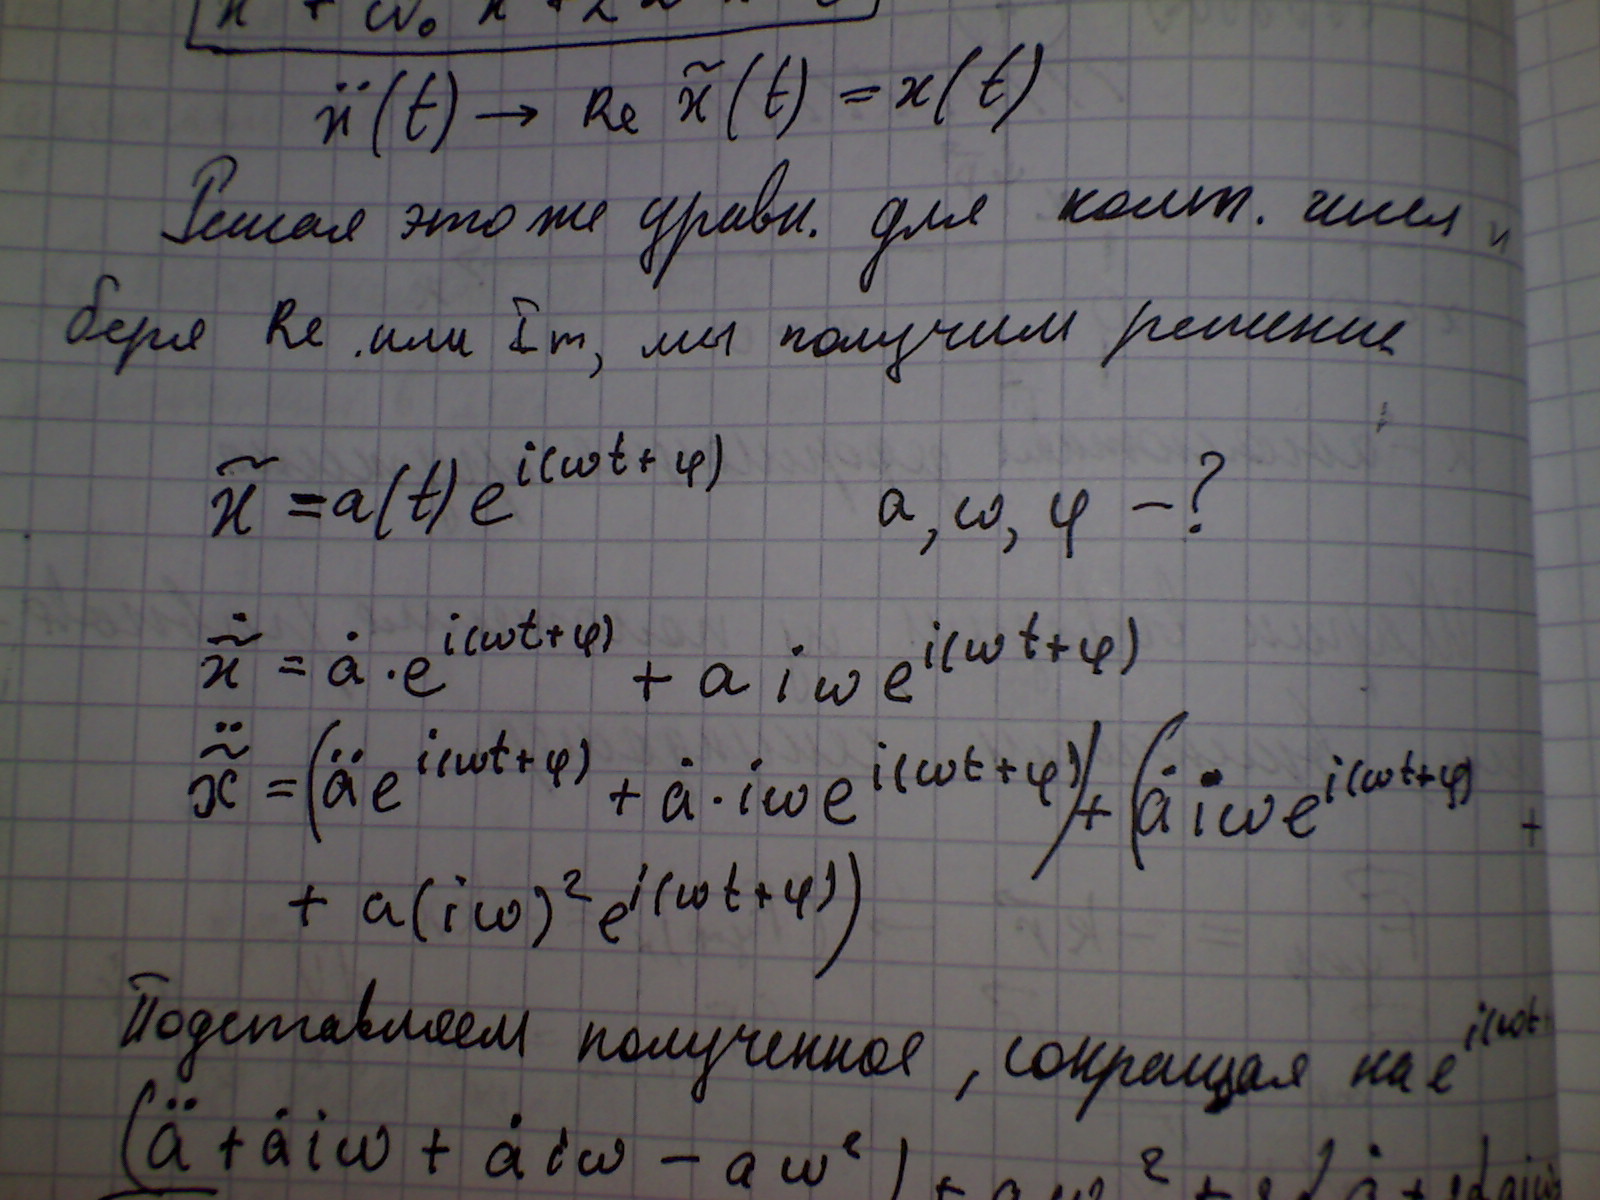 ẍ(t) → Re x̃(t) = x(t)
Решая это же уравн. для компл. чисел и
беря Re или Im, мы получим решение
x̃ = a(t) e^{i(ωt+φ)} a, ω, φ – ?
x̃̇ = ȧ · e^{i(ωt+φ)} + a i ω e^{i(ωt+φ)}
x̃̈ = (ä e^{i(ωt+φ)} + ȧ · iω e^{i(ωt+φ)}) + (ȧ i ω e^{i(ωt+φ)} +
+ a(iω)² e^{i(ωt+φ)})
Подставляем полученное, сокращая на e^{i(ωt
(ä + ȧiω + ȧiω – aω²) + aω